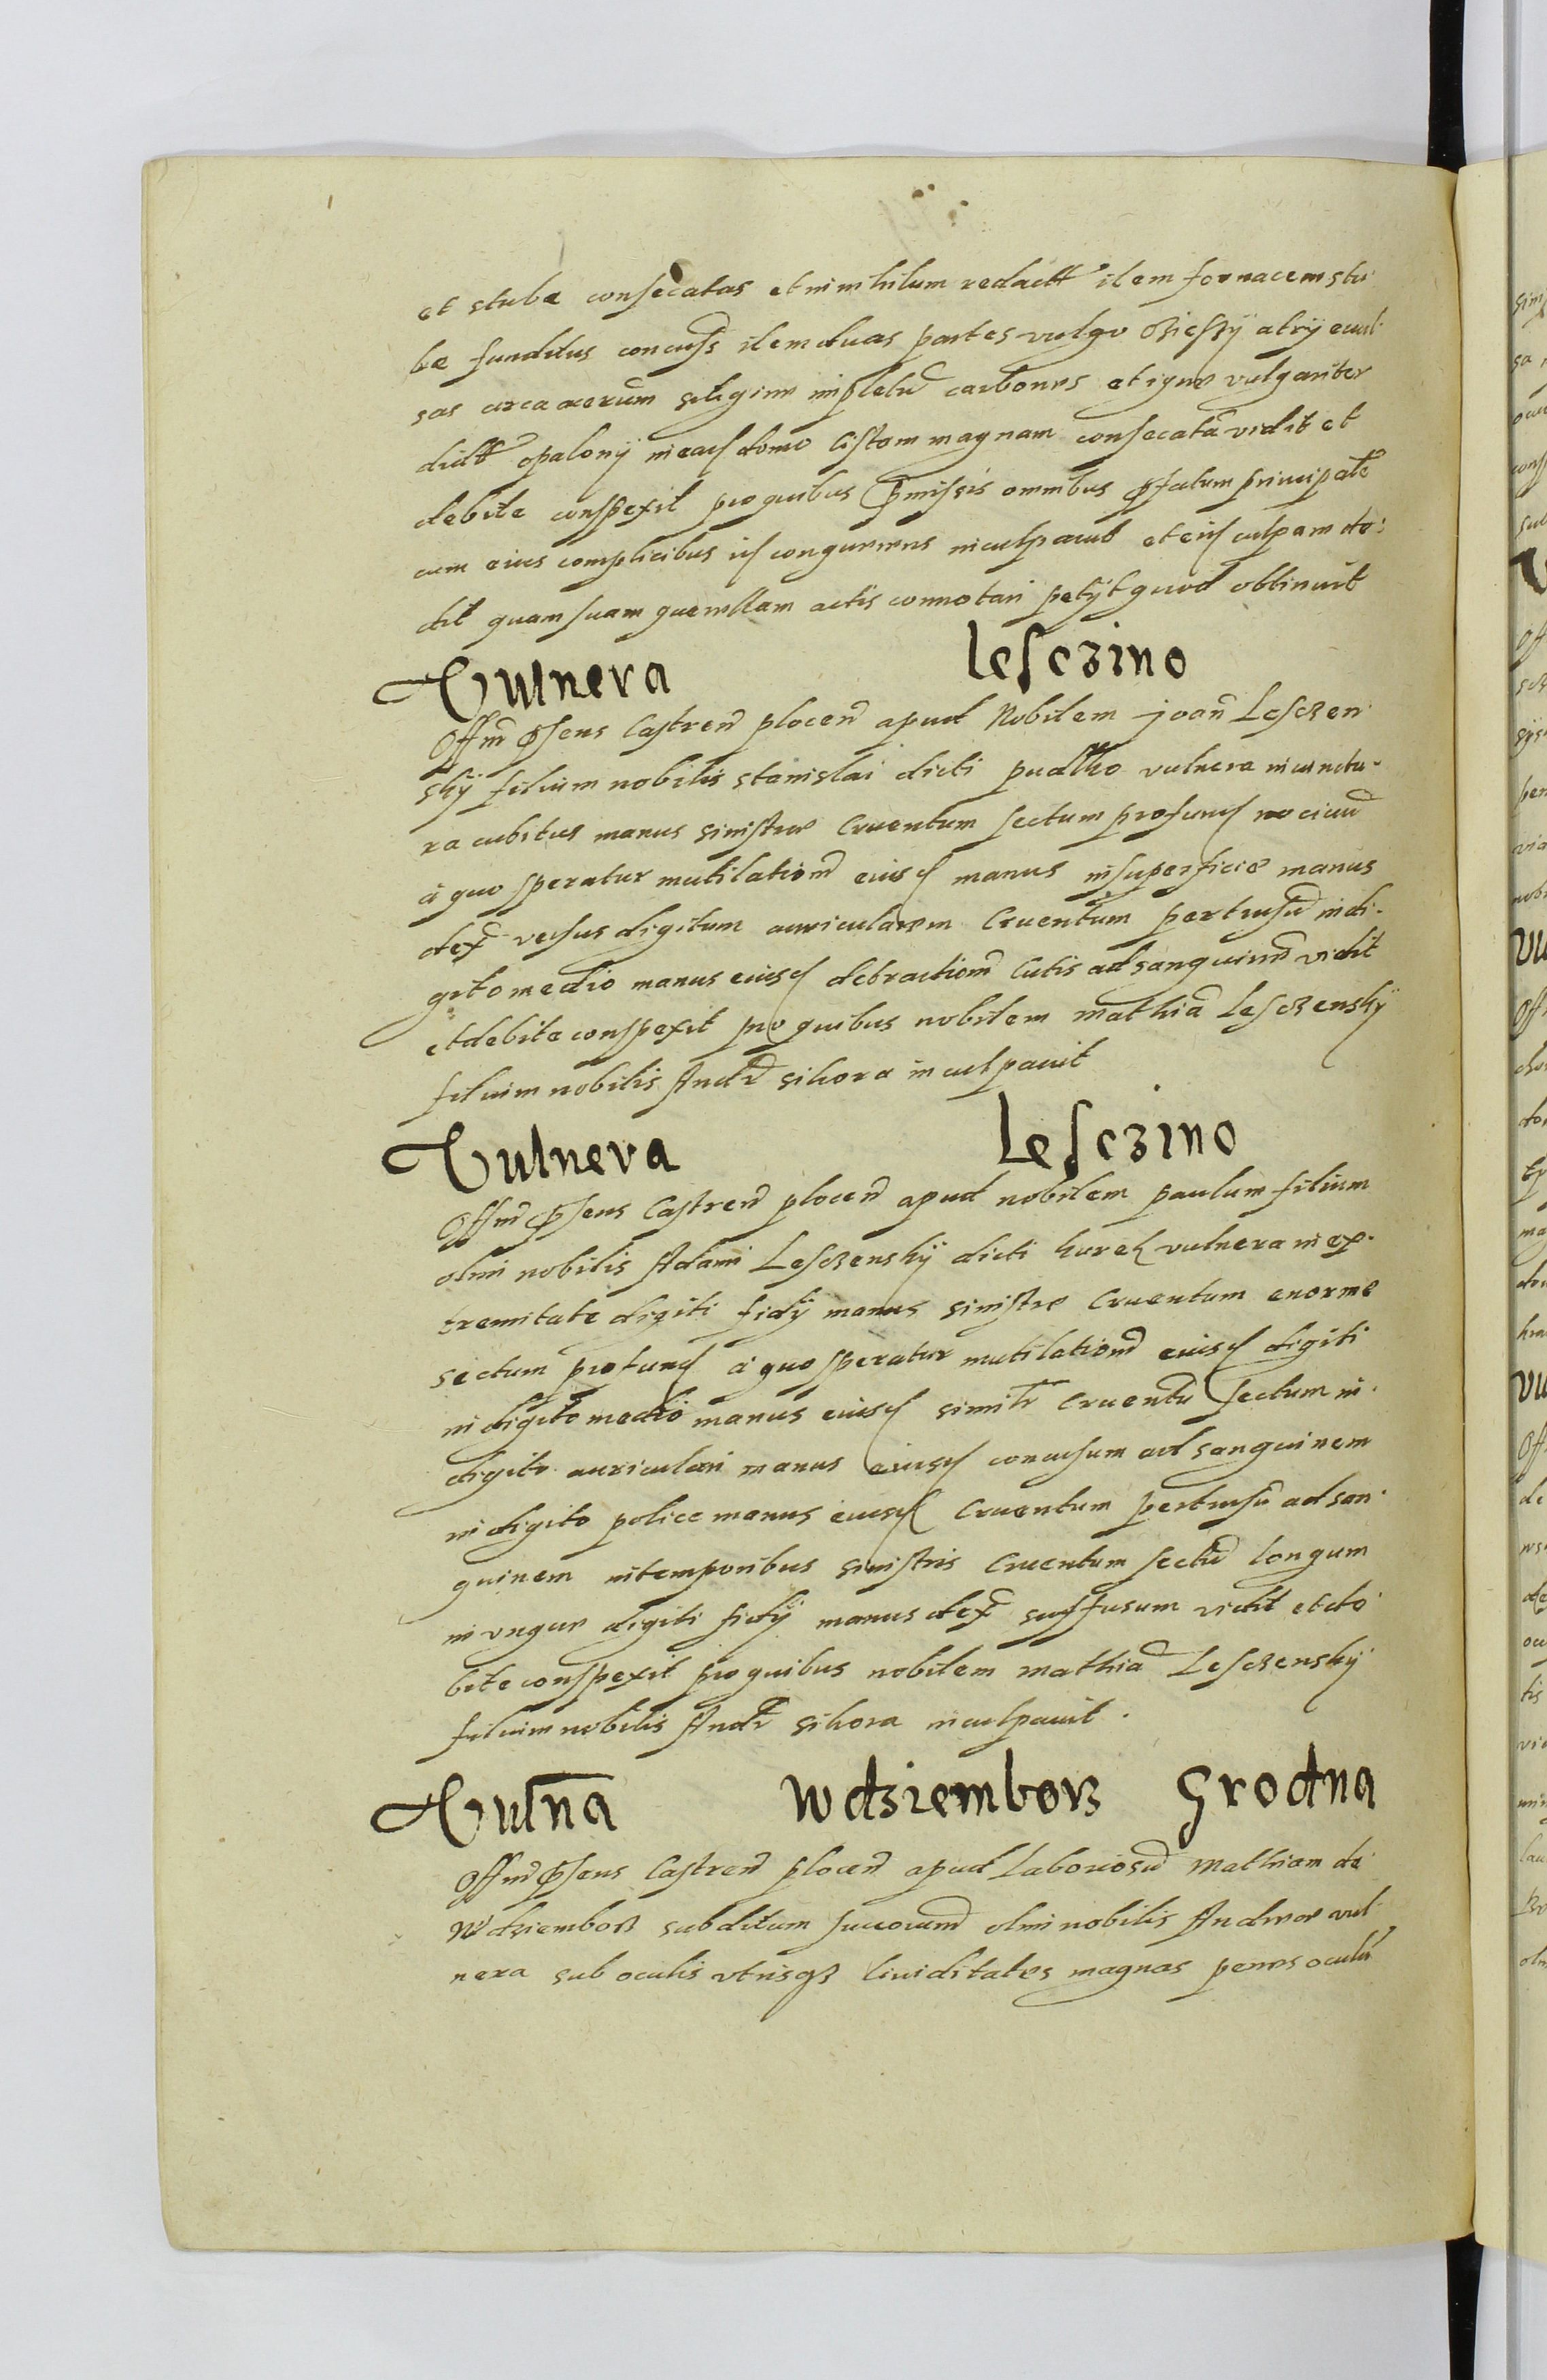 et stubæ consecatas et in nihilum redactt item fornacem stu
bæ funditus concuss item duas partes vulgo atrÿ euul
sas circa acerum siligine impletu carbones et igne vulgariter
dictt opalonÿ in ead domo Cistam magnam consecata vidit et
debite conspexit pro quibus pmissis omnibus pfatum principale
cum eius complicibus congruens inculpauit et culpam de
dit quam suam querellam actis connotari petÿt quod obtinuit
Vulnera lesczino
Offm psens Castren plocen apud Nobilem joan Lesczen
skÿ filium nobilis stanislai dicti pudlko vulnera in iunctu
ra cubitus manus sinistræ Cruentum sectum profund nociuu
à quo speratur mutilation eiusd manus in superficie manus
dex versus digitum auricularem Cruentum pertusu in di
gito medio manus eiusd detraction Cutis ad sanguinem vidit
et debite conspexit pro quibus nobilem mathia Lesczenskÿ
filium nobilis Andr sikora inculpauit
Vulnera Lesczino
Offm psens Castren plocen apud nobilem paulum filium
olmi nobilis Adami Lesczenskÿ dicti kurek vulnera in ex
tremitate digiti fidÿ manus sinistre Cruentum enorme
sectum profund à quo speratur mutilation eiusd digiti
in digito medio manus eiusd similr Cruentu sectum in
digito auriculari manus eiusd concusum ad sanguinem
in digito police manus eiusd Cruentum pertusu ad san
guinem in temporibus sinistris Cruentum sectu longum
in vngue digiti fidÿ manus dex suffusum vidit et de
bite conspexit pro quibus nobilem mathia Lesczenskÿ
filium nobilis Andr sikora inculpauit .
Vulna Wdziemborz Grodna
Offm psens Castren plocen apud Laboriosu Mathiam de
Wdziemborz subditum succorum olmi nobilis Andreæ vul
nera sub oculis vtrisqz liuiditates magnas penes oculu